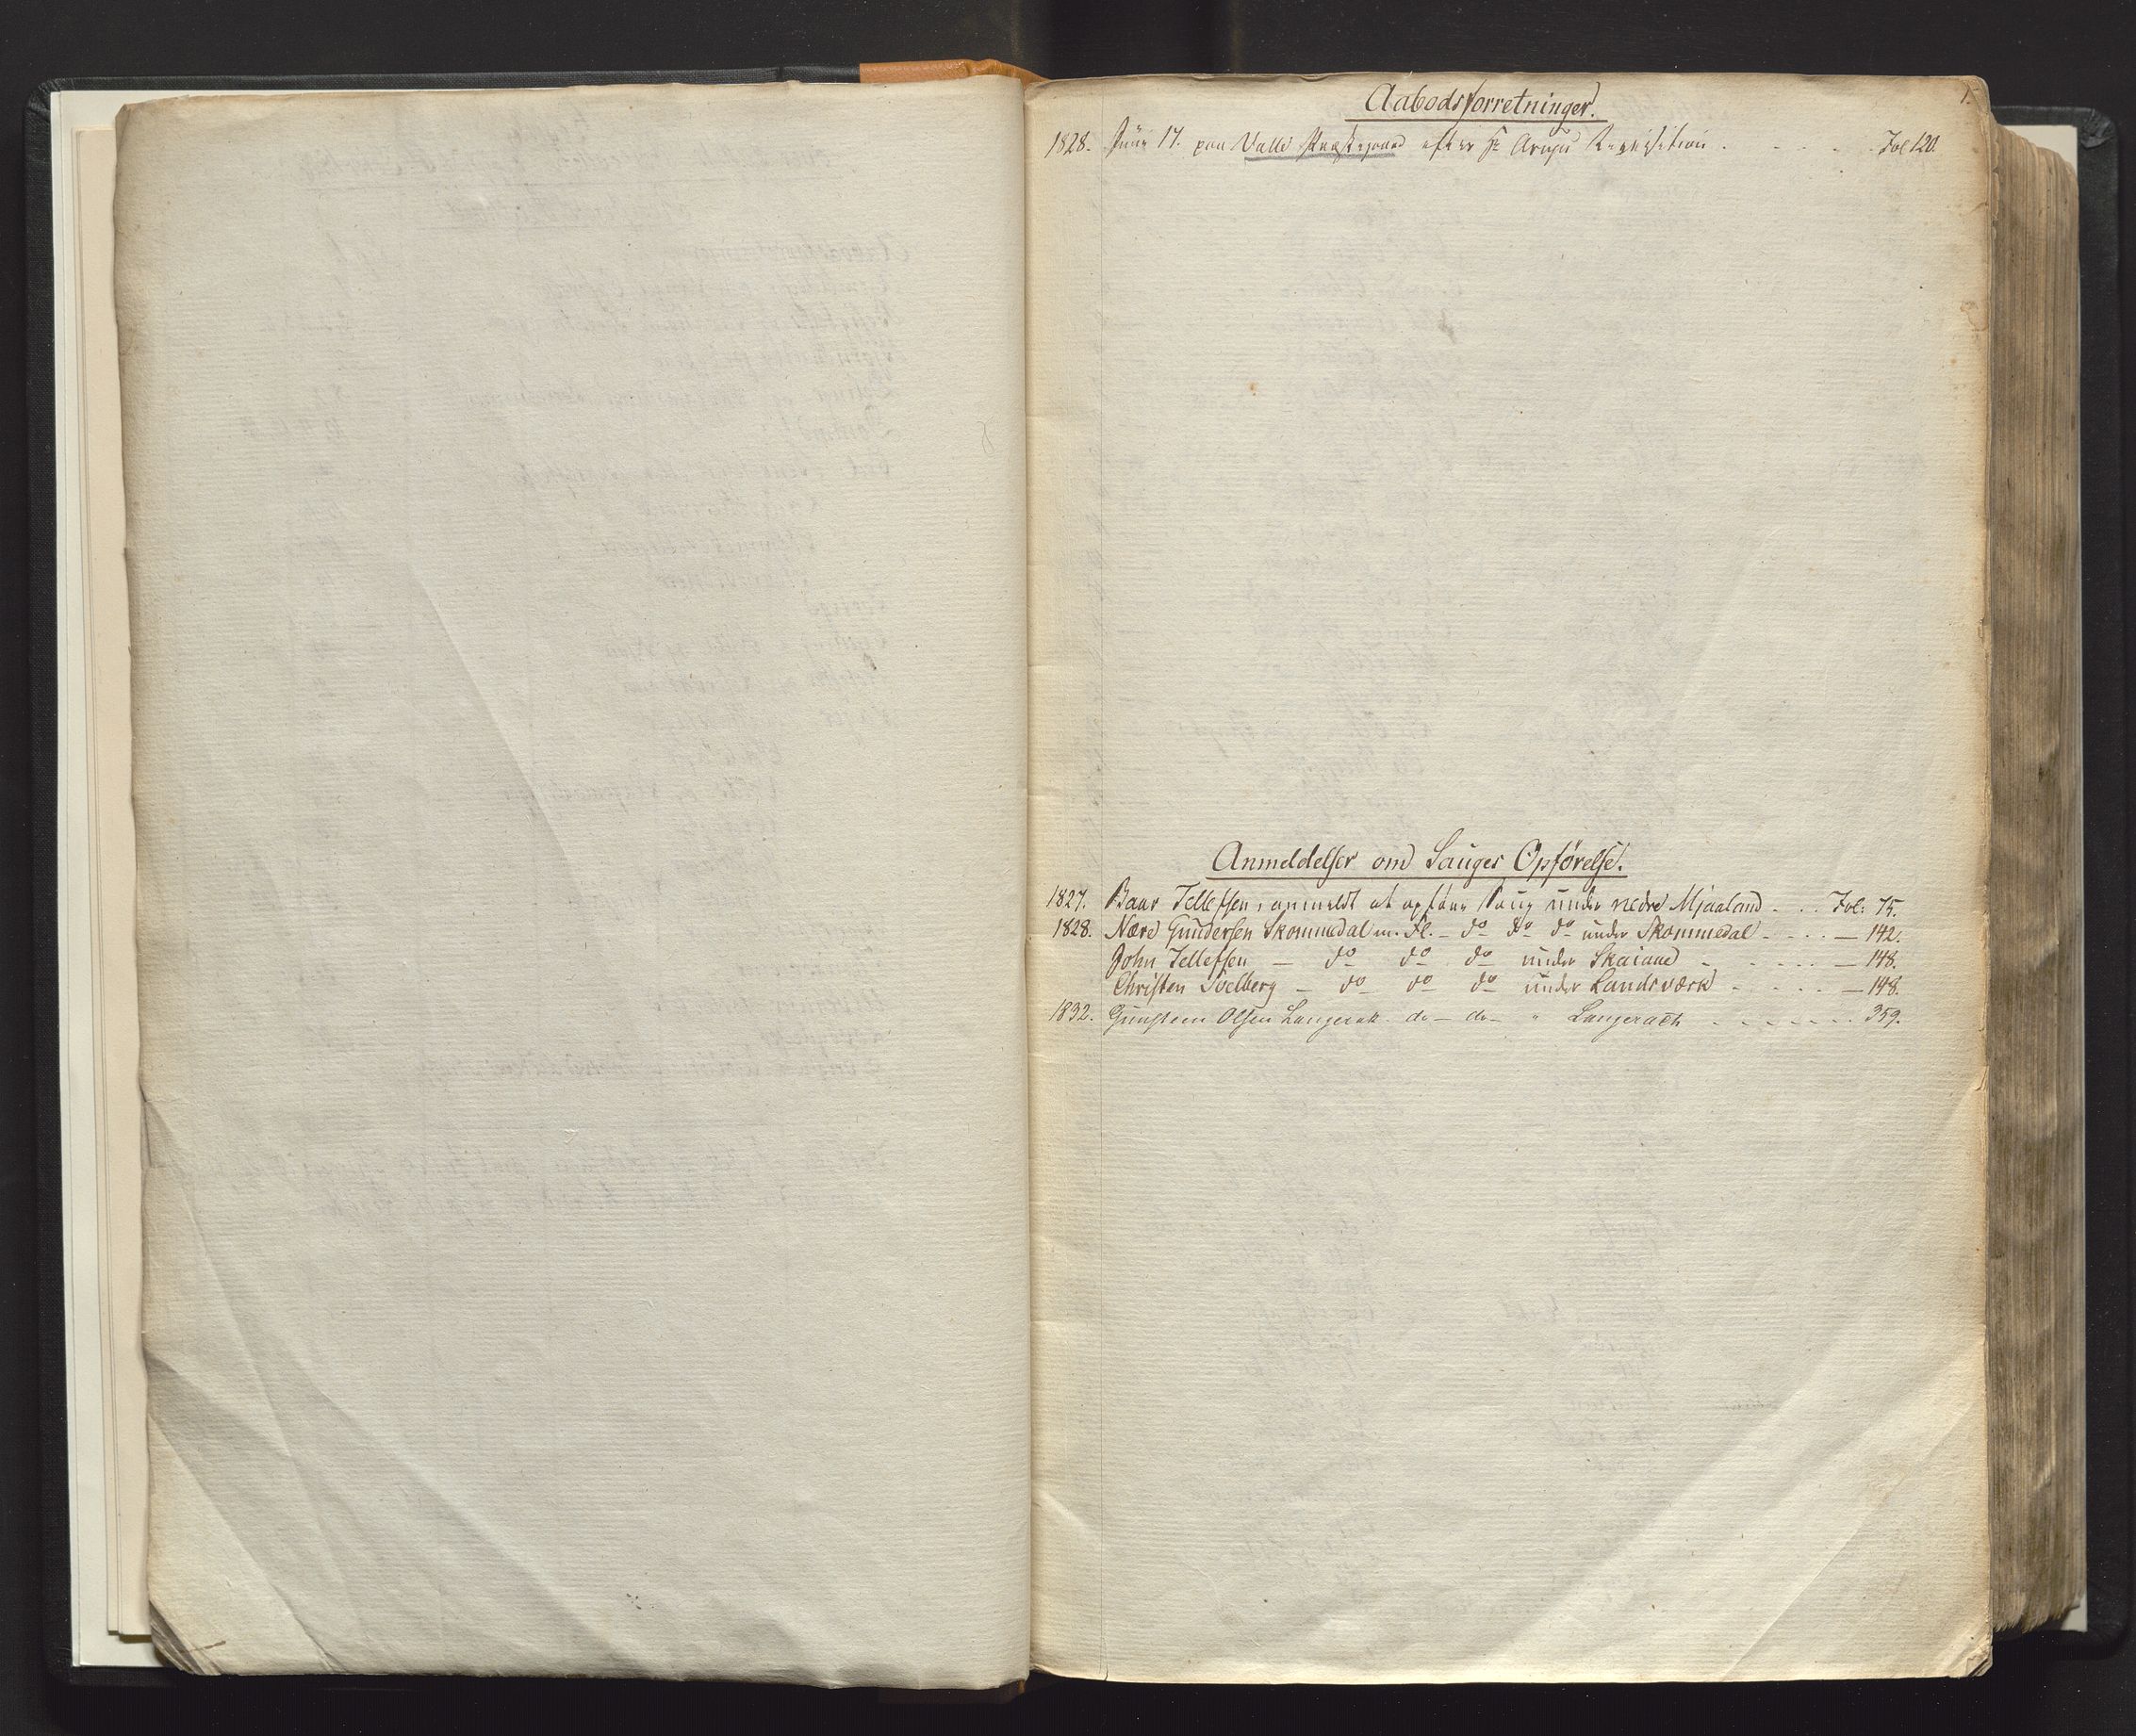 1.
Aabodsforretninger.
1828. Juni 17. paa Valle Præstegaard efter Hr Arups Requisition . . . . . Fol 120.
Anmeldelser om Sauges Opförelse.
1827. Baar Tellefsen, anmeldt at opföre Saug under nedre Mjaaland . . . Fol: 75.
1828. Nære Gundersen Skommedal m. Fl. – do do do under Skommedal . . . . – 142.
John Tellefsen – do do do under Skaiaae . . . . . – 148.
Christen Soelberg – do do do under Landsværk . . . . – 148.
1832. Gunsteen Olsen Langerak do – do – " Langerach . . . . . . 359.